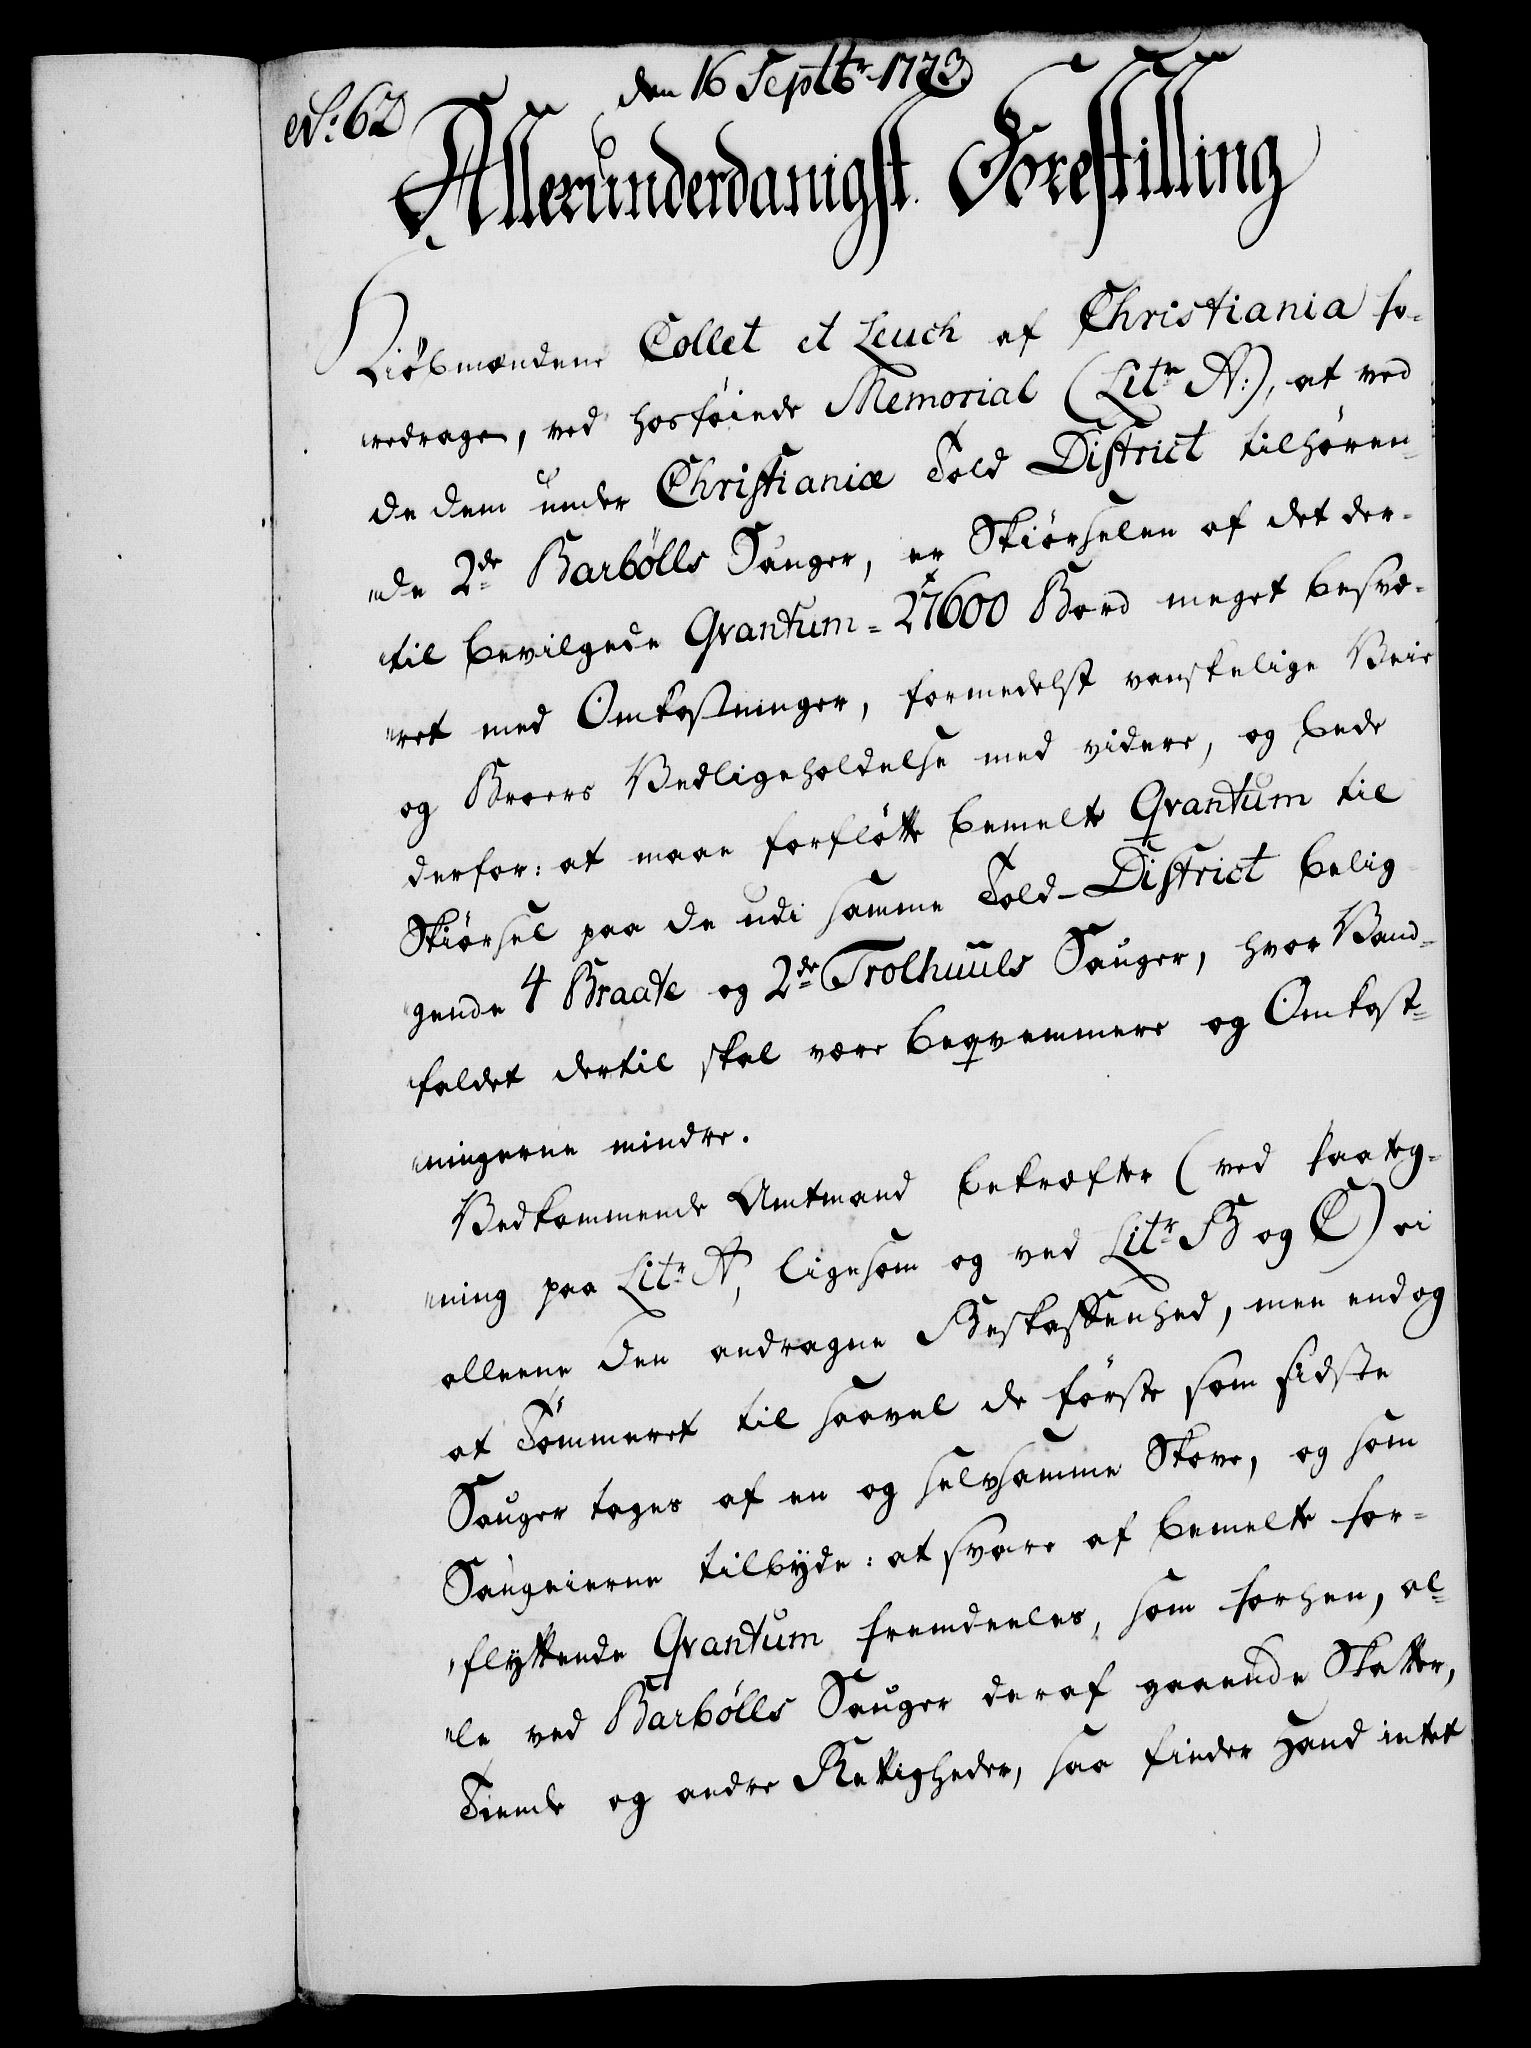 den 16 Septbr 1773
No: 62
Allerunderdanigst Forestilling
Kiøbmændene Collet et Leuch af Christiania fo-
redrage, ved hosføiede Memorial (Litr A:), at ved
de dem under Christianiæ Told District tilhøren-
de 2de Barbølls Sauger, er Skiørselen af det der-
til bevilgede Qvantum = 27600 Bord meget besvæ-
ret med Omkostninger, formedelst vanskelige Veie
og Broers Vedligeholdelse med videre, og bede
derfor: at maae forfløtte bemelte Qvantum til
Skiørsel paa de udi samme Told-District belig-
gende 4 Braate og 2de Trolhuuls Sauger, hvor Vand-
faldet dertil skal være beqvemmere og Omkost-
ningerne mindre.
Vedkommende Amtmand bekræfter (ved Paateg-
ning paa Litr A, ligesom og ved Litr B og C) ei
alleene den andragne Beskaffenhed, men endog
at Tømmeret til saavel de første som sidste
Sauger tages af en og selvsamme Skove, og som
Saugeierne tilbyde: at svare af bemelte for-
flyttende Qvantum fremdeeles, som forhen, al-
le ved Barbølls Sauger deraf gaaende Skatter,
Tiende og andre Rettigheder, saa finder Hand intet